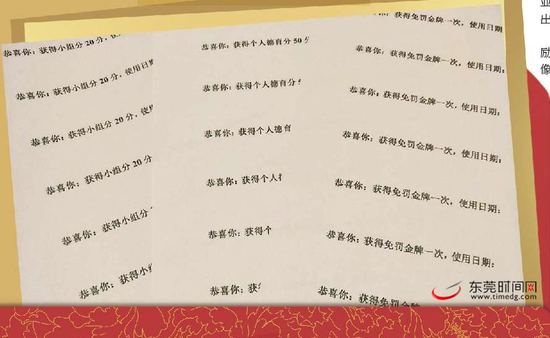 恭喜你：获得小组分 20 分，
恭喜你：获得小组分 20 分，使用日期
恭喜你：获得小组分 20 分，
恭喜你：获得小组分 20 分
恭喜你：获得小组分 2
恭喜你：获得小
恭喜你：获得个人德育分 50 分
恭喜你：获得个人德育分 5
恭喜你：获得个人德育
恭喜你：获得个人
恭喜你：获得个
恭喜你：获
恭喜你：获得免罚金牌一次，使用日期
恭喜你：获得免罚金牌一次，使用日期：
恭喜你：获得免罚金牌一次，使用日期：
恭喜你：获得免罚金牌一次，使用日期：
恭喜你：获得免罚金牌一次，使用日期：
恭喜你：获得免罚金牌一次，使用日期：
恭喜你：获得免罚金牌
出
励
像
东莞时间网
www.timedg.com